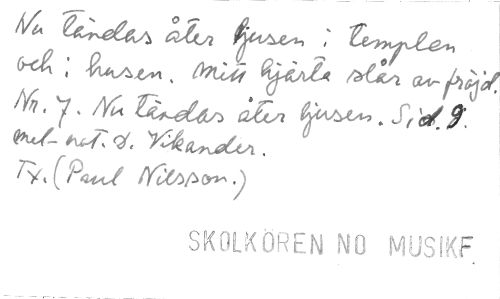 Nu tändas åter ljusen i templen
och i husen. Mitt hjärta slår av fröjd.
Nr. 7. Nu tändas åter ljusen. Sid. 9.
mel-not. D. Vikander.
Tx. (Paul Nilsson.)
SKOLKÖREN NO MUSIKF